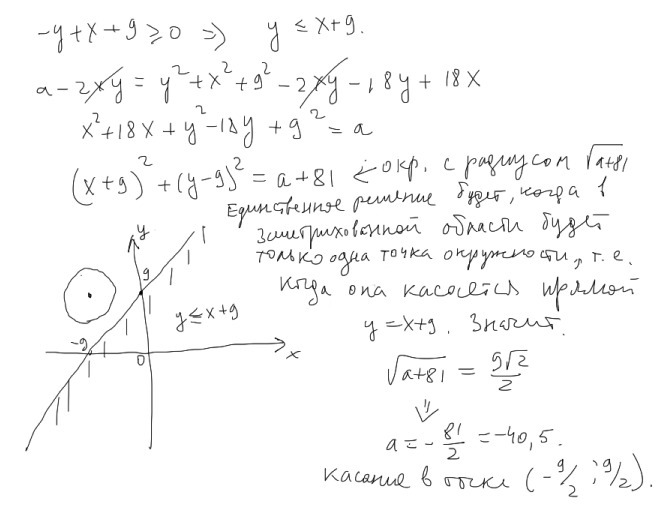 -y+x+9 ≥ 0 ⇒ y ≤ x+9.
a - 2xy = y² + x² + 9² - 2xy - 18y + 18x
x² + 18x + y² - 18y + 9² = a
(x+9)² + (y-9)² = a+81 ← окр. с радиусом √a+81
Единственное решение будет, когда в
заштрихованной области будет
только одна точка окружности, т.е.
когда она касается прямой
y = x+9. Значит.
√a+81 = 9√2/2
⇓
a = - 81/2 = -40,5.
касание в точке (-9/2 ; 9/2).
y
9
y ≤ x+9
-9
0
x